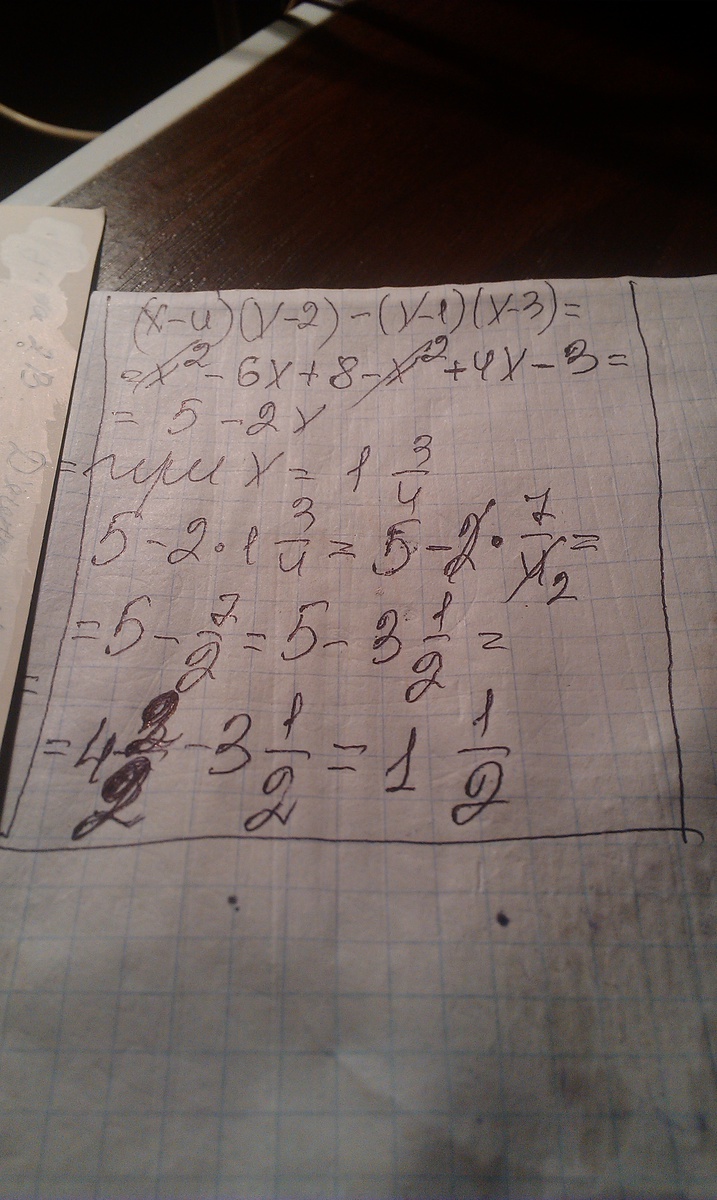 (x-4)(x-2)-(x-1)(x-3)=
=x²-6x+8-x²+4x-3=
= 5-2x
=при x = 1 3/4
5-2·1 3/4 = 5-2·7/4 2=
=5-7/2=5-3 1/2=
=4 2/2-3 1/2=1 1/2